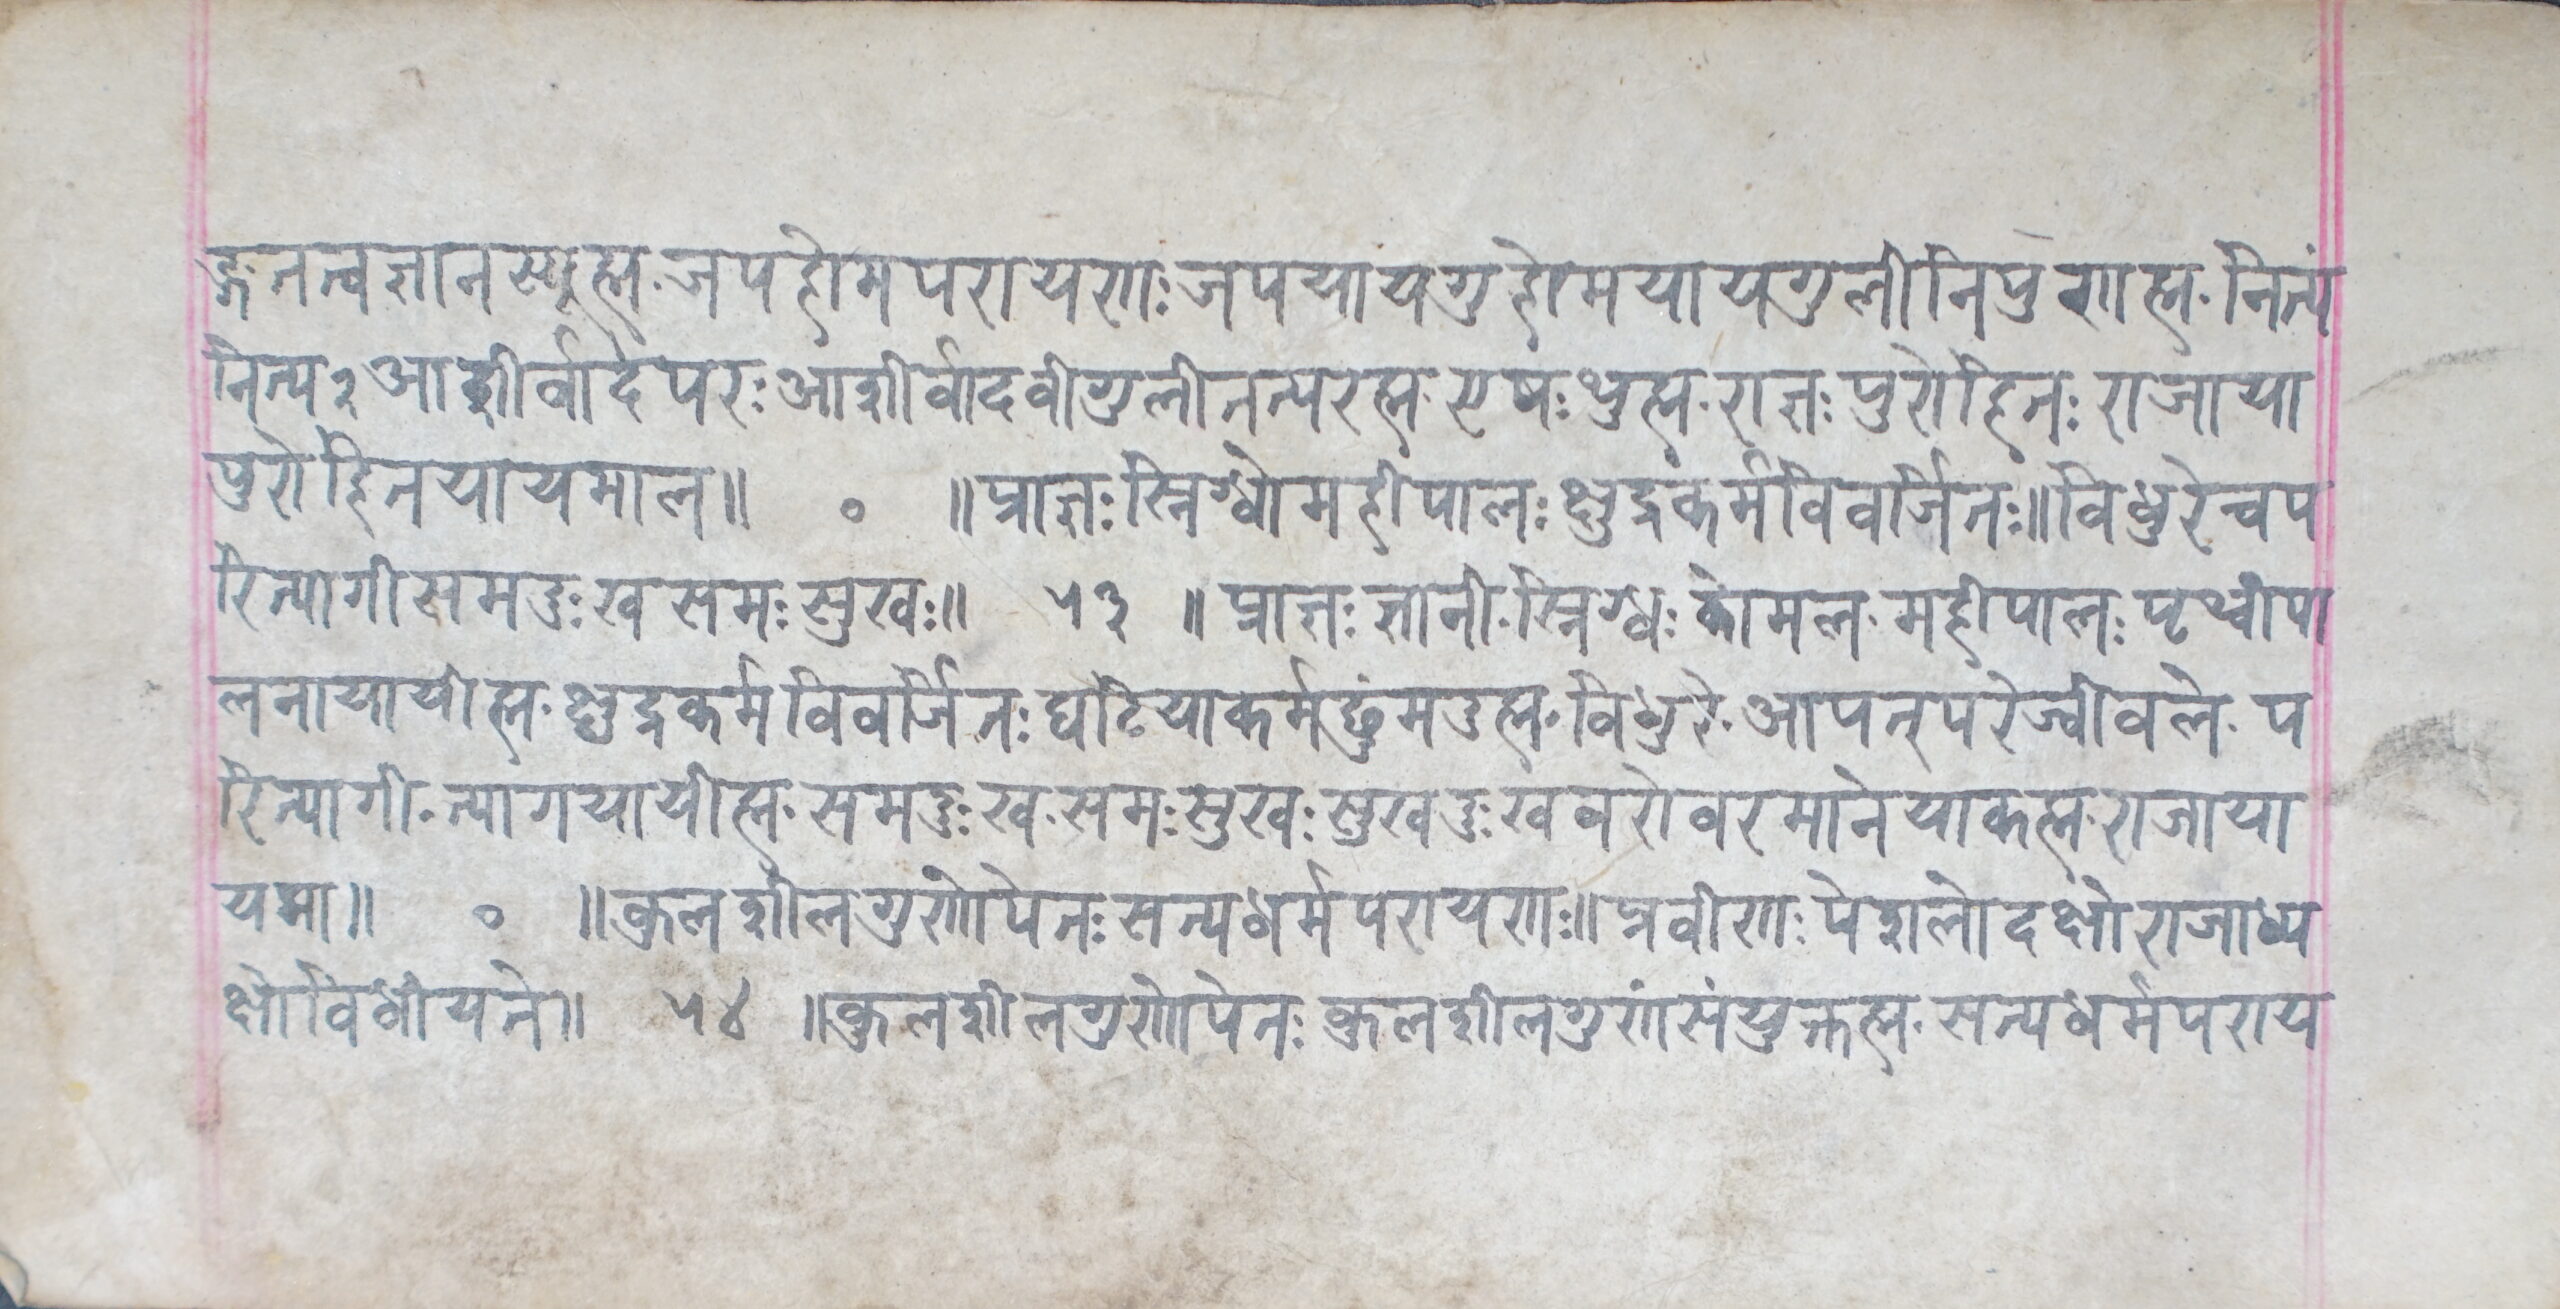 ङ्गतत्वज्ञानस्यूह्म. जपहोमपरायणः जपयायगुहोमयायगुलीनिपुणह्म. नित्यं
नित्य२आशीर्वादपरः आशीर्वादवीगुलीतत्परह्म. एषः थुह्म. राज्ञः पुरोहितः राजाया
पुरोहितयायमाल॥ ० ॥प्राज्ञः स्निग्धोमहीपालः क्षुद्रकर्मविवर्जितः॥विधुरेत्वप
रित्यागीसमदुःखसमःसुखः॥ ५३ ॥ प्राज्ञः ज्ञानी. स्निग्धः कोमल. महीपालः पृथ्वीपा
लनायायीह्म. क्षुद्रकर्मविवर्जितः घटियाकर्मछुंमदुह्म. विधुरे. आपत्परेज्वीवले. प
रित्यागी. त्यागयायीह्म. समदुःख. समःसुखः सुखदुःखबरोबरमानेयाकह्म. राजाया
यमा॥ ० ॥कुलशीलगुणोपेतः सत्यधर्मपरायणः॥प्रवीणः पेशलोदक्षोराजाध्य
क्षोविधीयते॥ ५४ ॥कुलशीलगुणोपेतः कुलशीलगुणसंयुक्तह्म. सत्यधर्मपराय